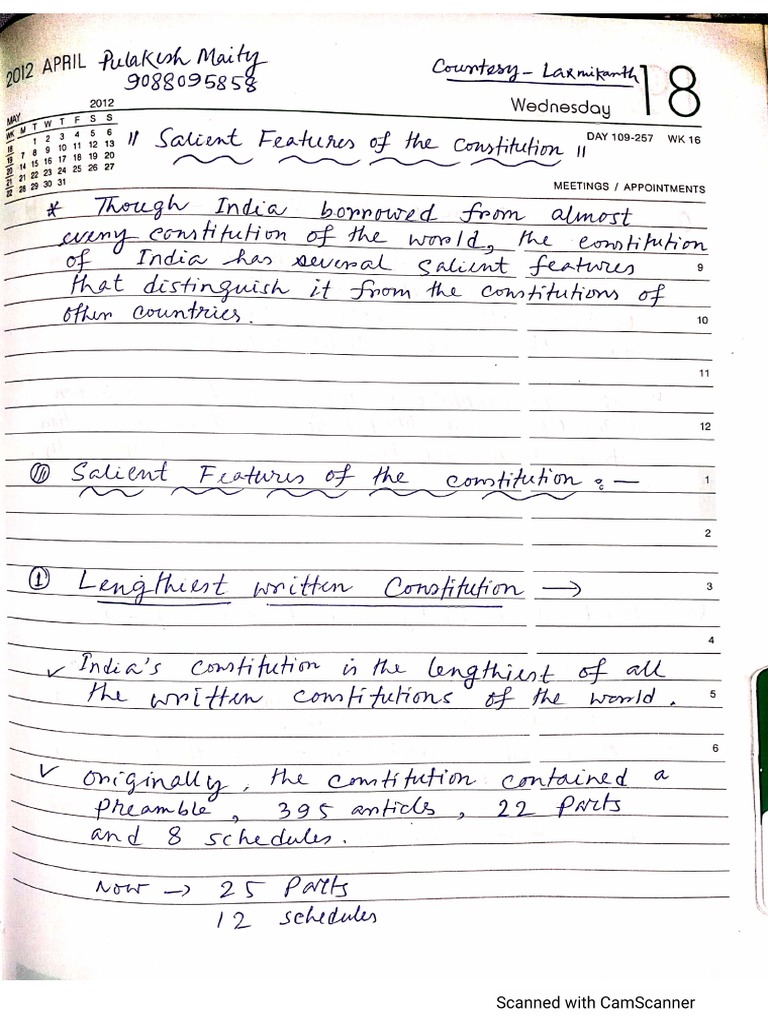 2012 APRIL Pulakesh Maity Courtesy - Laxmikanth 18
9088095858
Wednesday
MAY 2012
WK M T W T F S S
18 1 2 3 4 5 6
19 7 8 9 10 11 12 13
20 14 15 16 17 18 19 20
21 21 22 23 24 25 26 27
22 28 29 30 31
DAY 109-257 WK 16
" Salient Features of the Constitution "
MEETINGS / APPOINTMENTS
* Though India borrowed from almost
every constitution of the world, the constitution
of India has several salient features 9
that distinguish it from the constitutions of
other countries. 10
11
12
(III) Salient Features of the constitution :- 1
2
① Lengthiest written Constitution → 3
4
✓ India's constitution is the lengthiest of all
the written constitutions of the world. 5
6
✓ Originally, the constitution contained a
preamble, 395 articls, 22 Parts
and 8 schedules.
Now → 25 Parts
12 schedules
Scanned with CamScanner